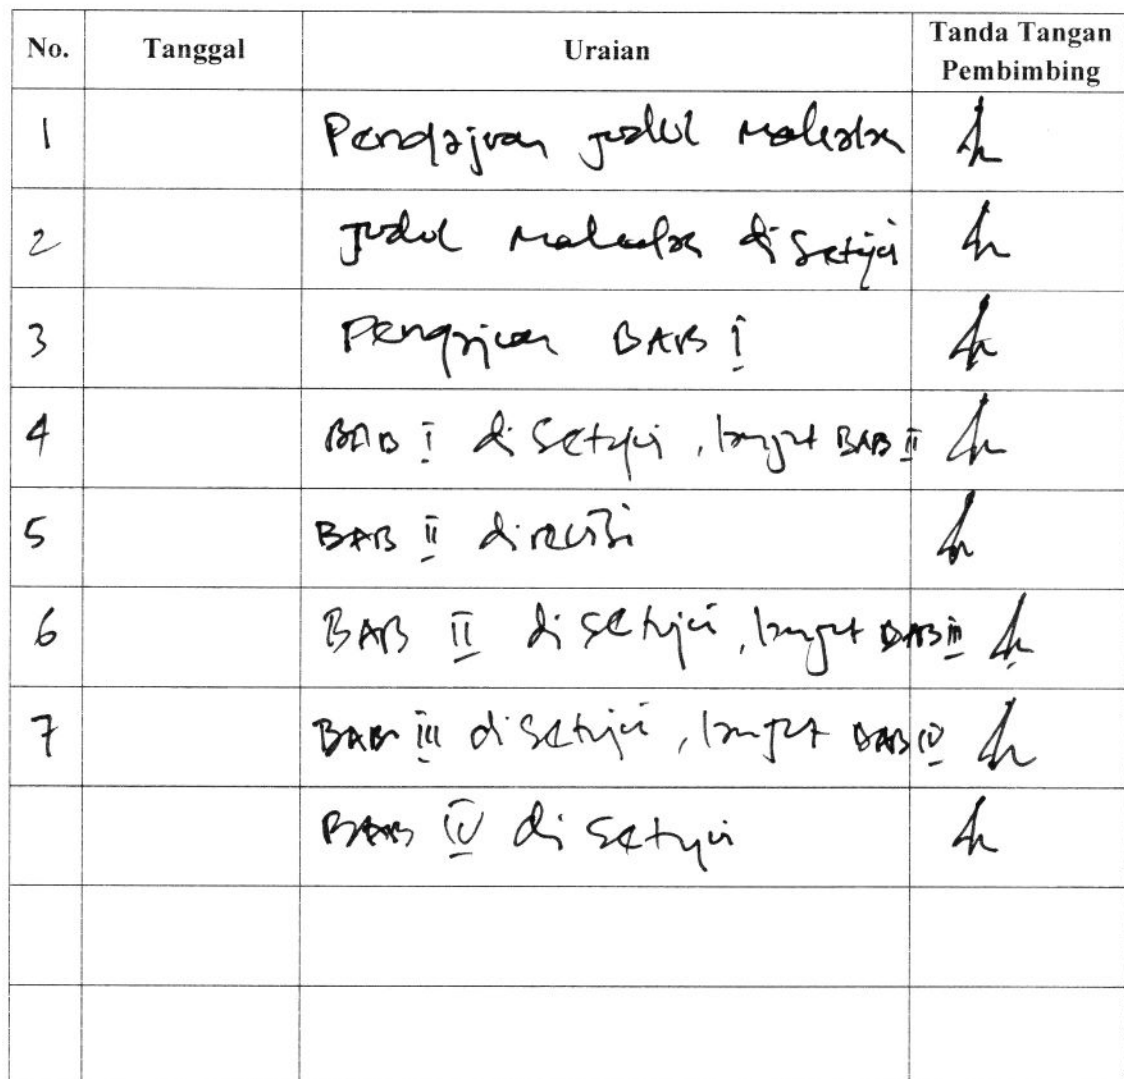 No. Tanggal Uraian Tanda Tangan Pembimbing
1 Pengajuan judul Makalah
2 judul Makalah disetujui
3 Pengajuan BAB I
4 BAB I disetujui, lanjut BAB II
5 BAB II direvisi
6 BAB II disetujui, lanjut BAB III
7 BAB III disetujui, lanjut BAB IV
BAB IV disetujui